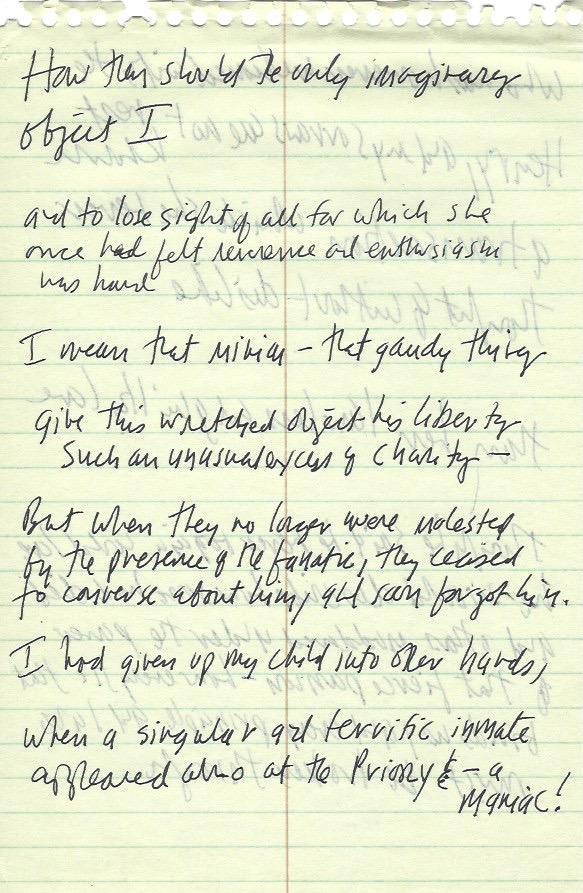 How they should be only imaginary
object I
and to lose sight of all for which she
once had felt reverence and enthusiasm
was hard
I mean that minion – that gaudy thing
give this wretched object his liberty
Such an unusual excess of Charity –
But when they no longer were molested
by the presence of the fanatic, they ceased
to converse about him, and soon forgot him.
I had given up my child into other hands,
when a singular and terrific inmate
appeared also at the Priory – a
Maniac!